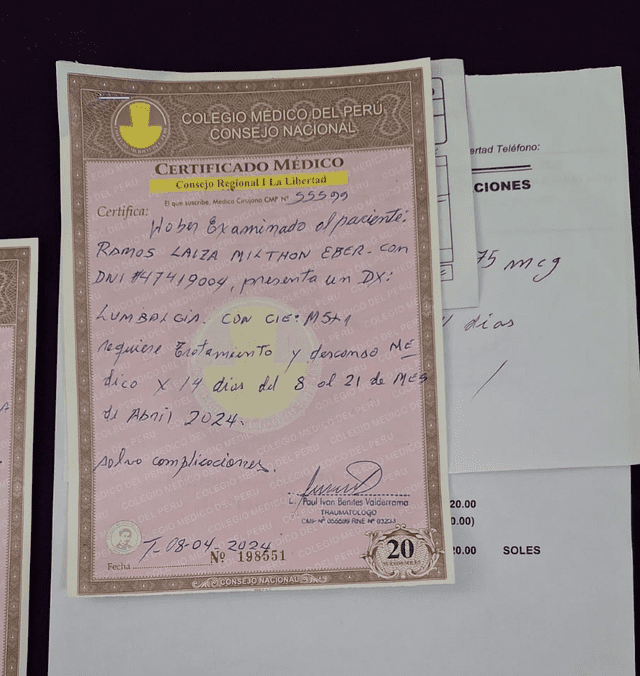 COLEGIO MÉDICO DEL PERÚ
CONSEJO NACIONAL
CERTIFICADO MÉDICO
Consejo Regional I La Libertad
El que suscribe, Médico Cirujano CMP Nº 55599
Certifica:
Haber Examinado al paciente:
RAMOS LAIZA MILTHON EBER. con
DNI #47419004, presenta un DX:
LUMBALGIA. CON CIE: M54.1
requiere tratamiento y descanso ME
dico x 14 dias del 8 al 21 de MES
de Abril 2024.
salvo complicaciones.
Paul Ivan Benites Valderrama
TRAUMATOLOGO
CMP Nº 055599 RNE Nº
Fecha T-08-04-2024
Nº 198551
20
CONSEJO NACIONAL
ertad Teléfono:
CIONES
75 mcg
dias
20.00
0.00)
20.00 SOLES